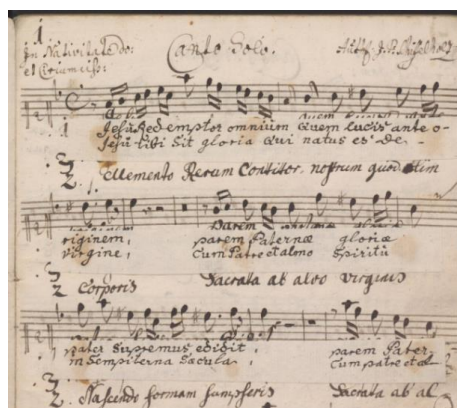 1
In Nativitate Do:
et Circumcis:
Canto Solo.
Auth: J. B.
Jesu Redemptor omnium Quem lucis ante o-
Jesu tibi Sit gloria Qui natus es de -
2 Memento Rerum Conditor, nostrum quod olim
riginem, parem Paternæ gloriæ
virgine, Cum Patre et almo Spiritu
2 Corporis Sacrata ab alvo virginis
pater Supremus edidit, parem Pater
in Sempiterna Sæcula. Cum patre et al
2. Nascendo formam Sumpseris Sacrata ab al